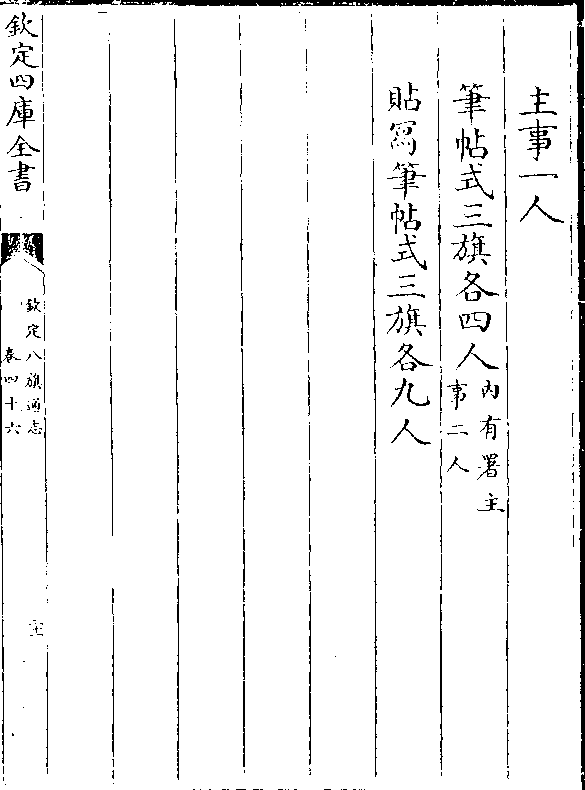 主事一人
筆帖式三旗各四人內有署主事二人
貼寫筆帖式三旗各九人
欽定四庫全書
欽定八旗通志
卷四十六